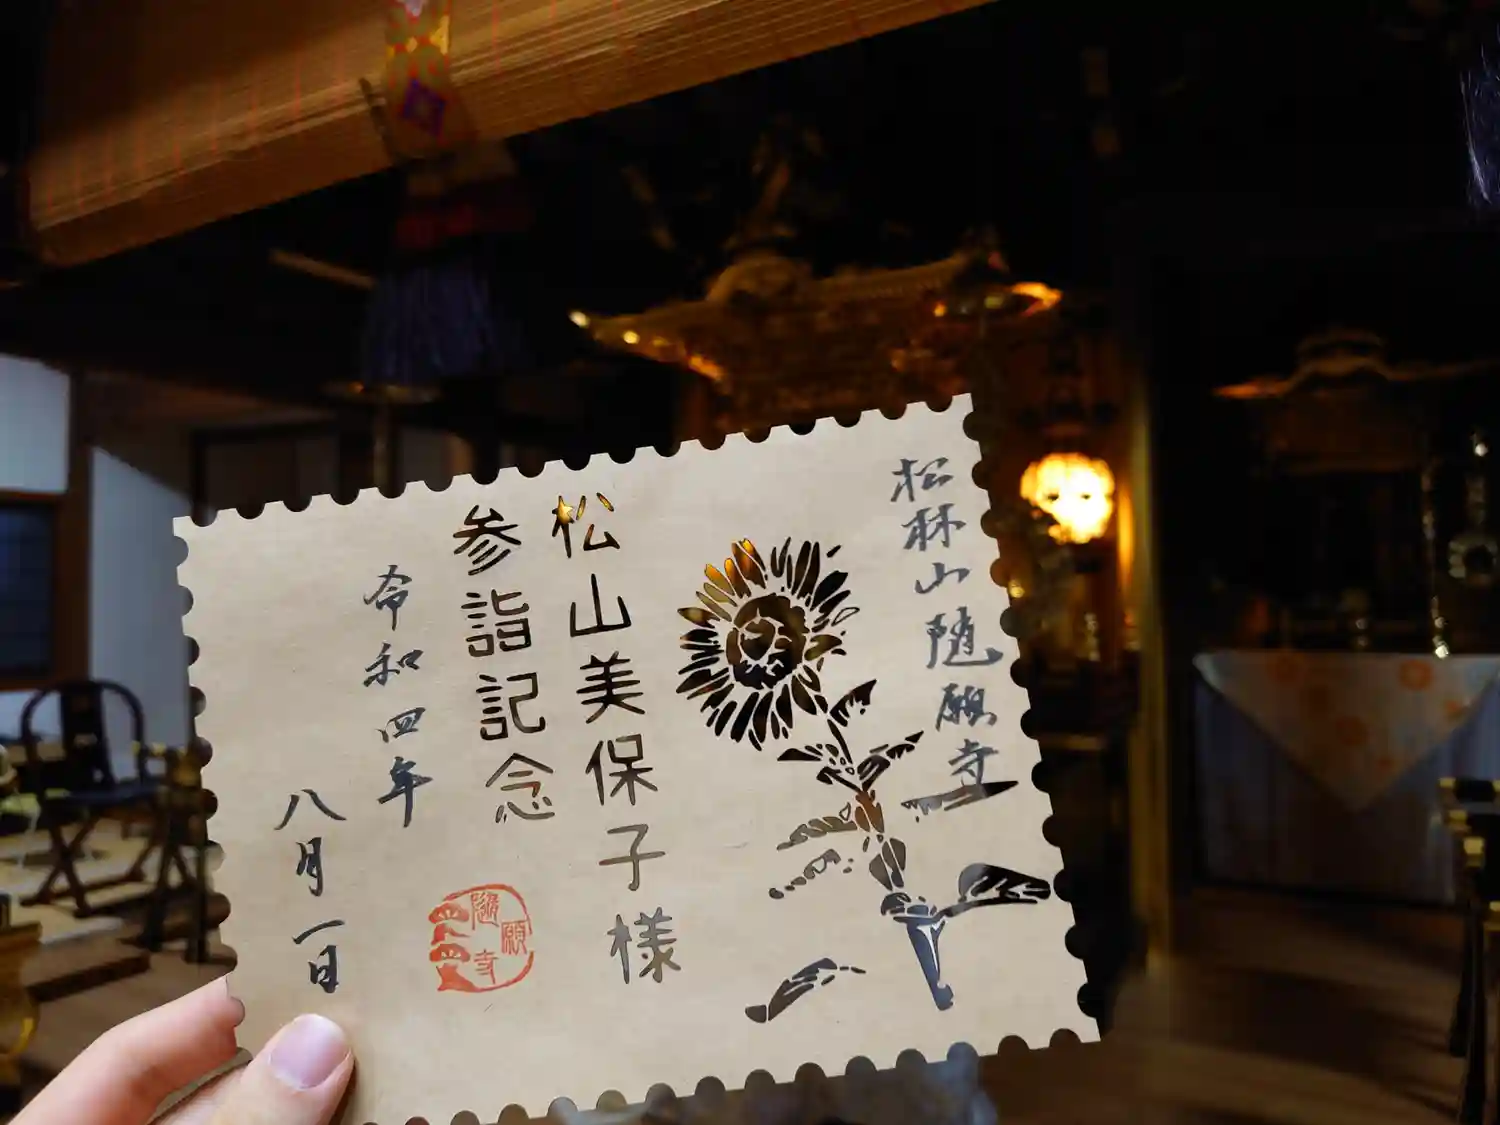 松林山随願寺
松山美保子様
参詣記念
令和四年
八月一日
随願寺